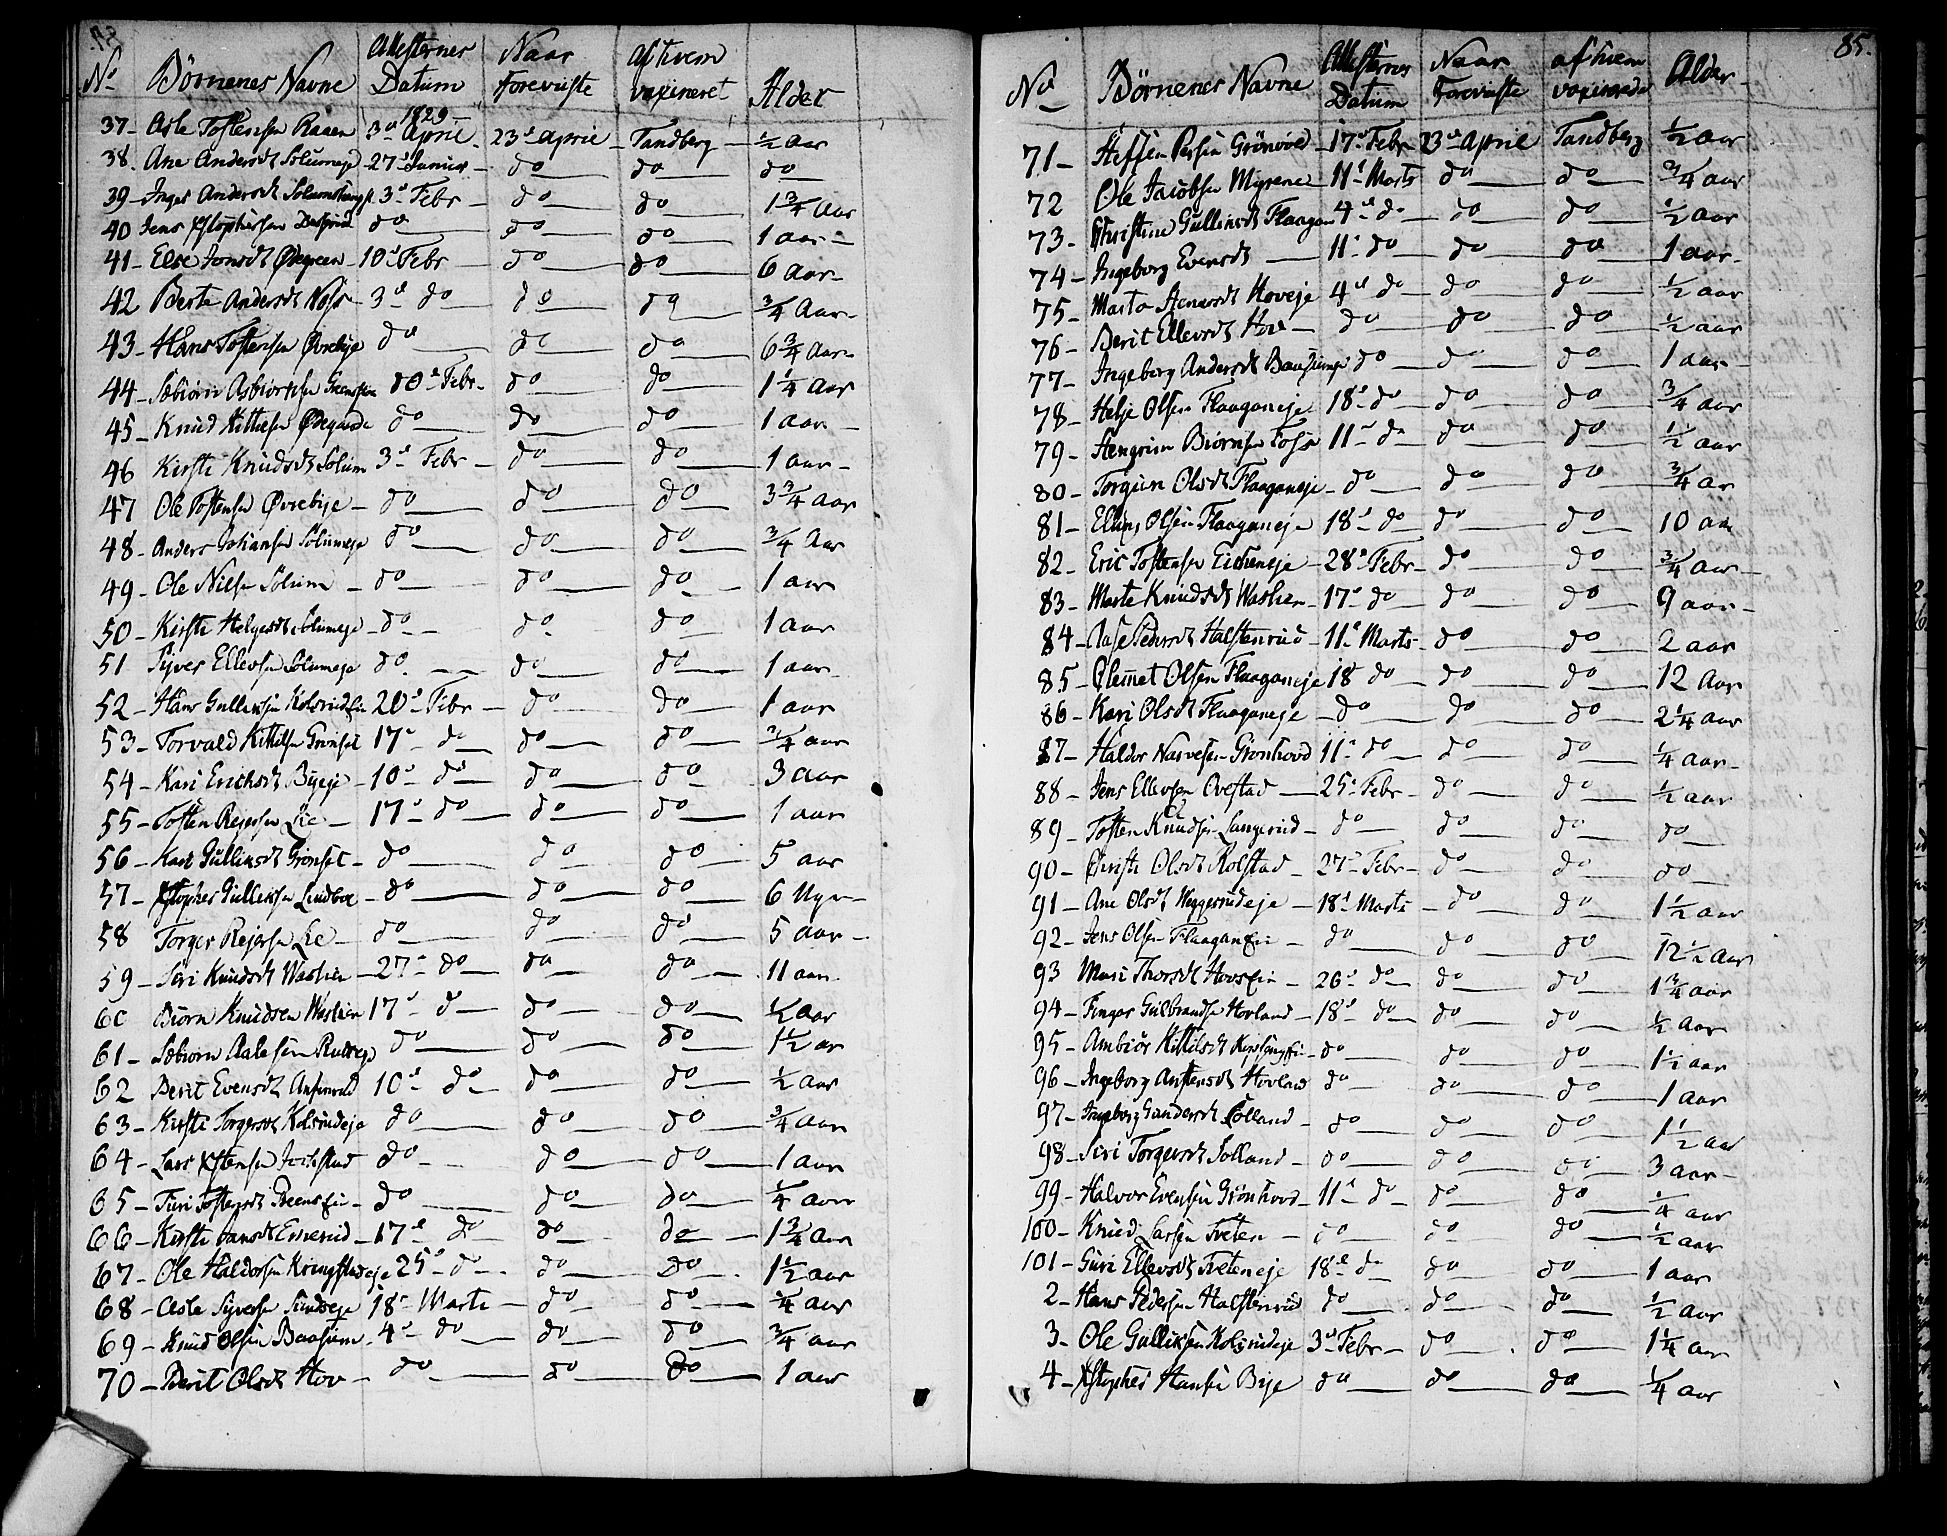 No Börnenes Navne Attesternes Datum Naar Foreviiste af hvem vaxineret Alder
1829
37 - Asle Tostensen Raaen 3d April 23d april Tandberg ½ aar
38. Ane Andersdt Solumeje 27d do do do
39 - Inger Andersdt 3d Febr do do 1¾ aar
40 Jens Xstophersen do do do 1 aar
41 - Else Jonsdt Ødegreen 10d Febr do do 6 Aar
42 Berte Andersdt 3d do do do ¾ Aar
43 - Hans Tostensen Øvrebye do do do 6¾ Aar
44 - Sebiörn Asbiörnsen Febr do do 1¼ Aar
45 - Knud Kittelsen Ødegaarde do do do 1 aar
46 Kirsti Knudsdt Solum 3d Febr do do 1 aar
47 Ole Tostensen Øvrebye do do do 3¾ Aar
48 - Anders Johansen Solumeje do do do ¾ Aar
49 - Ole Nilsen Solum do do do 1 aar
50 - Kirsti Helgesdt Solumeje do do do 1 aar
51 Syver Ellevsen Solumeje do do do 1 aar
52 - Hans Gulliksen 20d Febr do do 1 aar
53 - Torvald Kittilsen Grönset 17d do do do ¾ aar
54 - Kari Erichsdt Byeje 10d do do do 3 aar
55 - Tosten Rejersen Lie 17d do do do 1 aar
56 - Kari Gulliksdt Grönset do do do 5 aar
57 - Xstopher Gulliksen Lindboe do do do 6 Ugr
58 Torger Rejersen Lie do do do 5 aar
59 - Siri Knudsdt Waslien 27d do do do 11 aar
60 Biörn Knudsen Waslien 17d do do do ½ aar
61 - Sebiörn do do do 1½ ar
62 Berit Evensdt 10d do do do ½ aar
63 - Kirsti Torgersdt Kolsrudeje do do do ¾ aar
64 - Lars Xstensen do do do 1 aar
65 - Turi Tostensdt do do do ¼ aar
66 - Kirsti 17d do do do 1¾ Aar
67 - Ole Haldorsen 25d do do do 1½ aar
68 - Asle Syversen 18d Marti do do ¼ aar
69 - Knud Olsen Baasum 4d do do do ¾ aar
70 - Berit Olsdt Hov do do do 1 aar
85.
No Börnenes Navne Attesternes Datum Naar Foreviiste af hvem vaxinerede Alder
71 - Steffen 17d Febr 23d April Tandberg ½ aar
72 Ole Jacobsen Myrene 11d Marts do do ¾ aar
73 - Christine Gulliksdt Flaagan 4d do do do ½ aar
74 - Ingeborg Evensdt 11d do do do 1 aar
75 - Marta Hoveje 4d do do do ½ aar
76 - Berit Ellevsdt Hov do do do ½ aar
77 - Ingeborg Andersdt do do do 1 aar
78 - Helje Olsen Flaaganeje 18d do do do ¾ aar
79 - Hengrim Biörnsen Foss 11d do do do ½ aar
80 - Torgun Olsdt Flaaganeje do do do ¾ ar
81 - Olsen Flaaganeje 18d do do do 10 aar
82 - Eric Tostensen 28d Febr do do ¾ aar
83 - Marte Knudsdt Waslien 17d do do do 9 aar
84 - Aase Pedersdt Halstenrud 11d Marts do do 2 aar
85 - Clemet Olsen Flaaganeje 18 do do do 12 Aar
86 - Kari Olsdt Flaaganeje do do do 2¼ aar
87 - Haldor Narvesen Grönhovd 11d do do do ¼ aar
88 - Jens Ellevsen Ovestad 25d Febr do do ½ aar
89 - Tosten Knudsen Langerud do do do do
90 - Christi Olsdt Rolstad 27d Febr do do do
91 - Ane Olsdt Heggerudeje 18d Marts do do 1½ aar
92 - Jens Olsen do do do 12½ Aar
93 Mari Thorsdt 26d do do do 1¾ aar
94 - Finger Gulbrandsen Hovland 18d do do do ½ aar
95 - Ambiör Kittilsdt do do do 1½ aar
96 - Ingeborg Hovland do do do 1 aar
97 - Ingeborg Gundersdt Solland do do do 1½ aar
98 - Siri Torgersdt Solland do do do 3 aar
99 - Halvor Evensen Grönhovd 11d do do do ¼ aar
100 - Knud Larsen Tveten do do do ½ aar
101 - Guri Ellevsdt Tveteneje 18d do do do 1 aar
2 - Hans Pedersen Halstenrud do do do ½ aar
3 - Ole Gulliksen Kolsrudeje 3d Febr do do 1¼ ar
4 - Xstopher Hansen Bye do do do ¼ aar